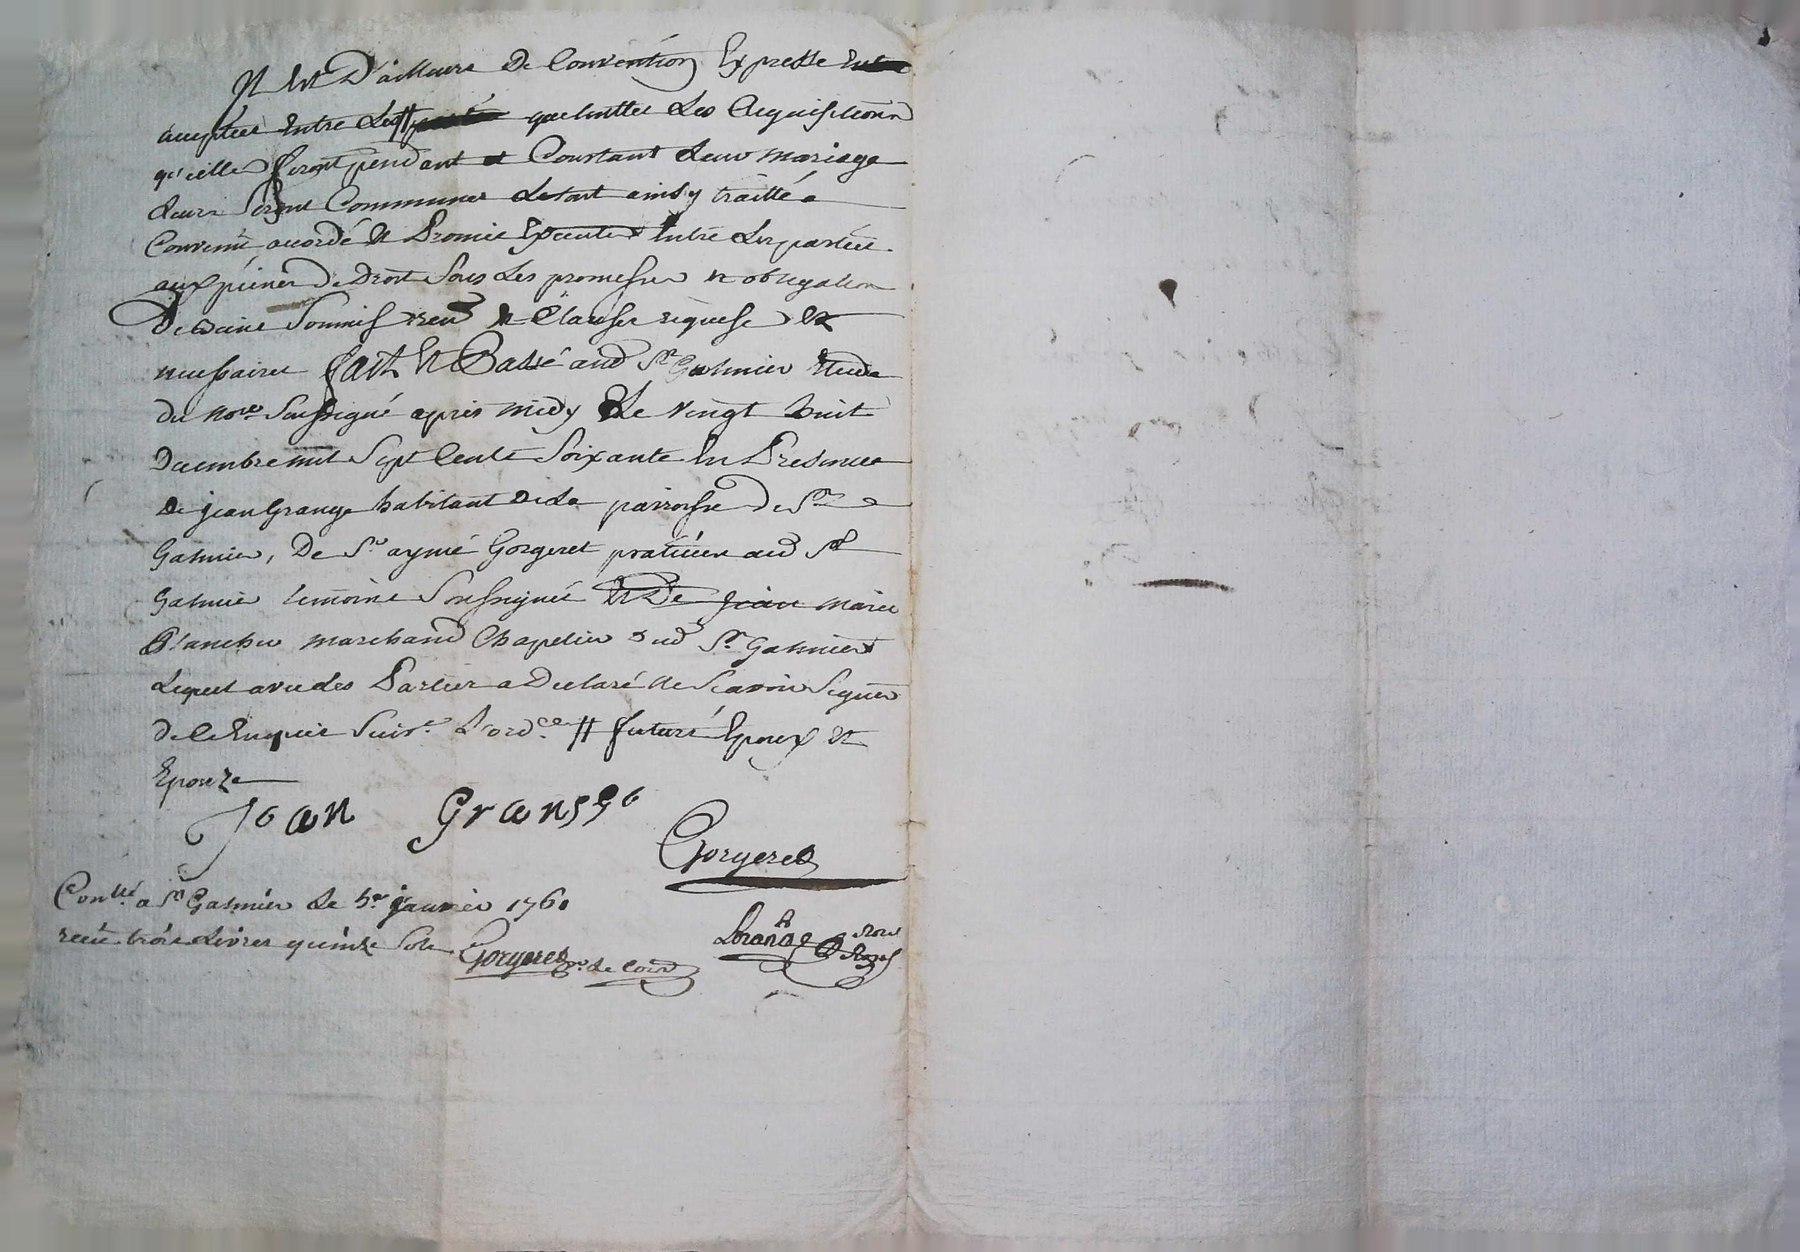 Il Est D'ailleurs De Convention Expresse
acceptée Entre Les // que touttes Les Acquisitions
qu'elles feront pendant et Constant Leur mariage
Leurs seront Communes Letout ainsy traitté
Convenü accordé Et Promis Executer Entre Les parties
aux peines De Droit Sous Les promesses et obligation
De biens Soumis renon et Clauses requise Et
necessaires fait Et Passé aud St Galmier Etude
du nore Soussigné apres midy Le vingt huit
Decembre mil Sept Cents Soixante En Presence
De jean Grange habitant de la parroisse De St
Galmier, De Sr aymé Gorgeret praticien aud St
Galmier temoins Soussignés Et De jean marie
Blancher marchand Chapelier dud St Galmier
Lequel avec les Parties a Declaré Ne Scavoir Signer
de ce Enquis Suivt L'ordce // futurs Epoux Et
Epouze
Jean Grange
Gorgeret
Conllé a St Galmier Le 5er janvier 1761
recu trois Livres quinze Sols Gorgeret